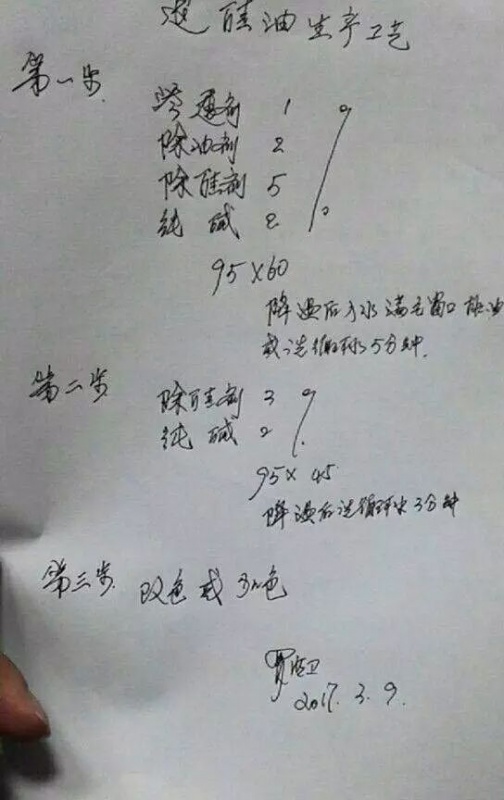 硅油生产工艺
第一步
渗透剂 1 %
除油剂 2
除硅剂 5
纯碱 2
95×60
降温后入水满毛窗口
或选循环5分钟.
第二步
除硅剂 3 %
纯碱 2
95×45
降温后选循环水3分钟
第三步. 改色或 色
2017.3.9.